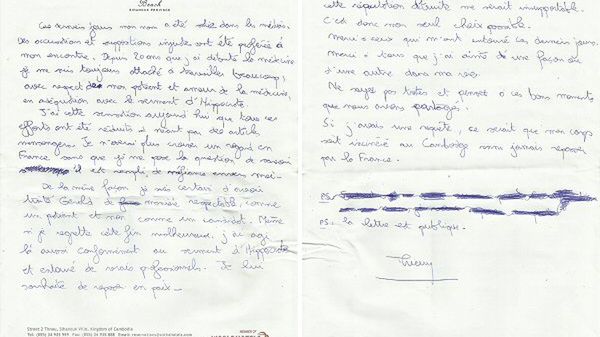 Beach
SIHANOUK PROVINCE
Ces derniers jours mon nom a été dans les médias.
Des accusations et suppositions injustes ont été proférées à
mon encontre. Depuis 20 ans que j'ai débuté la médecine
je me suis toujours attaché à travailler beaucoup,
avec respect de mon patient et amour de la médecine,
en adéquation avec le serment d'Hippocrate.
J'ai cette sensation aujourd'hui que tous ces
efforts ont été réduits à néant par des articles
mensongers. Je n'oserai plus croiser un regard en
France sans que je me pose la question de savoir
s'il est rempli de méfiance envers moi.
De la même façon je suis certain d'avoir
traité Gérald de manière respectable, comme
un patient et non comme un candidat. Même
si je regrette cette fin malheureuse, j'ai agi
là aussi conformément au serment d'Hippocrate
et entouré de vrais professionnels. Je lui
souhaite de reposer en paix.
Street 2 Thnou, Sihanouk Ville, Kingdom of Cambodia
MEMBER OF
cette réputation détruite me serait insupportable.
C'est donc mon seul choix possible.
Merci à ceux qui m'ont entouré ces derniers jours.
Merci à tous que j'ai aimé d'une façon ou
d'une autre dans ma vie.
Ne soyez pas tristes et pensez à ces bons moments
que nous avons partagés.
Si j'avais une requête, ce serait que mon corps
soit incinéré au Cambodge sans jamais repasser
par la France.
PS:
PS: la lettre est publique.
Thierry